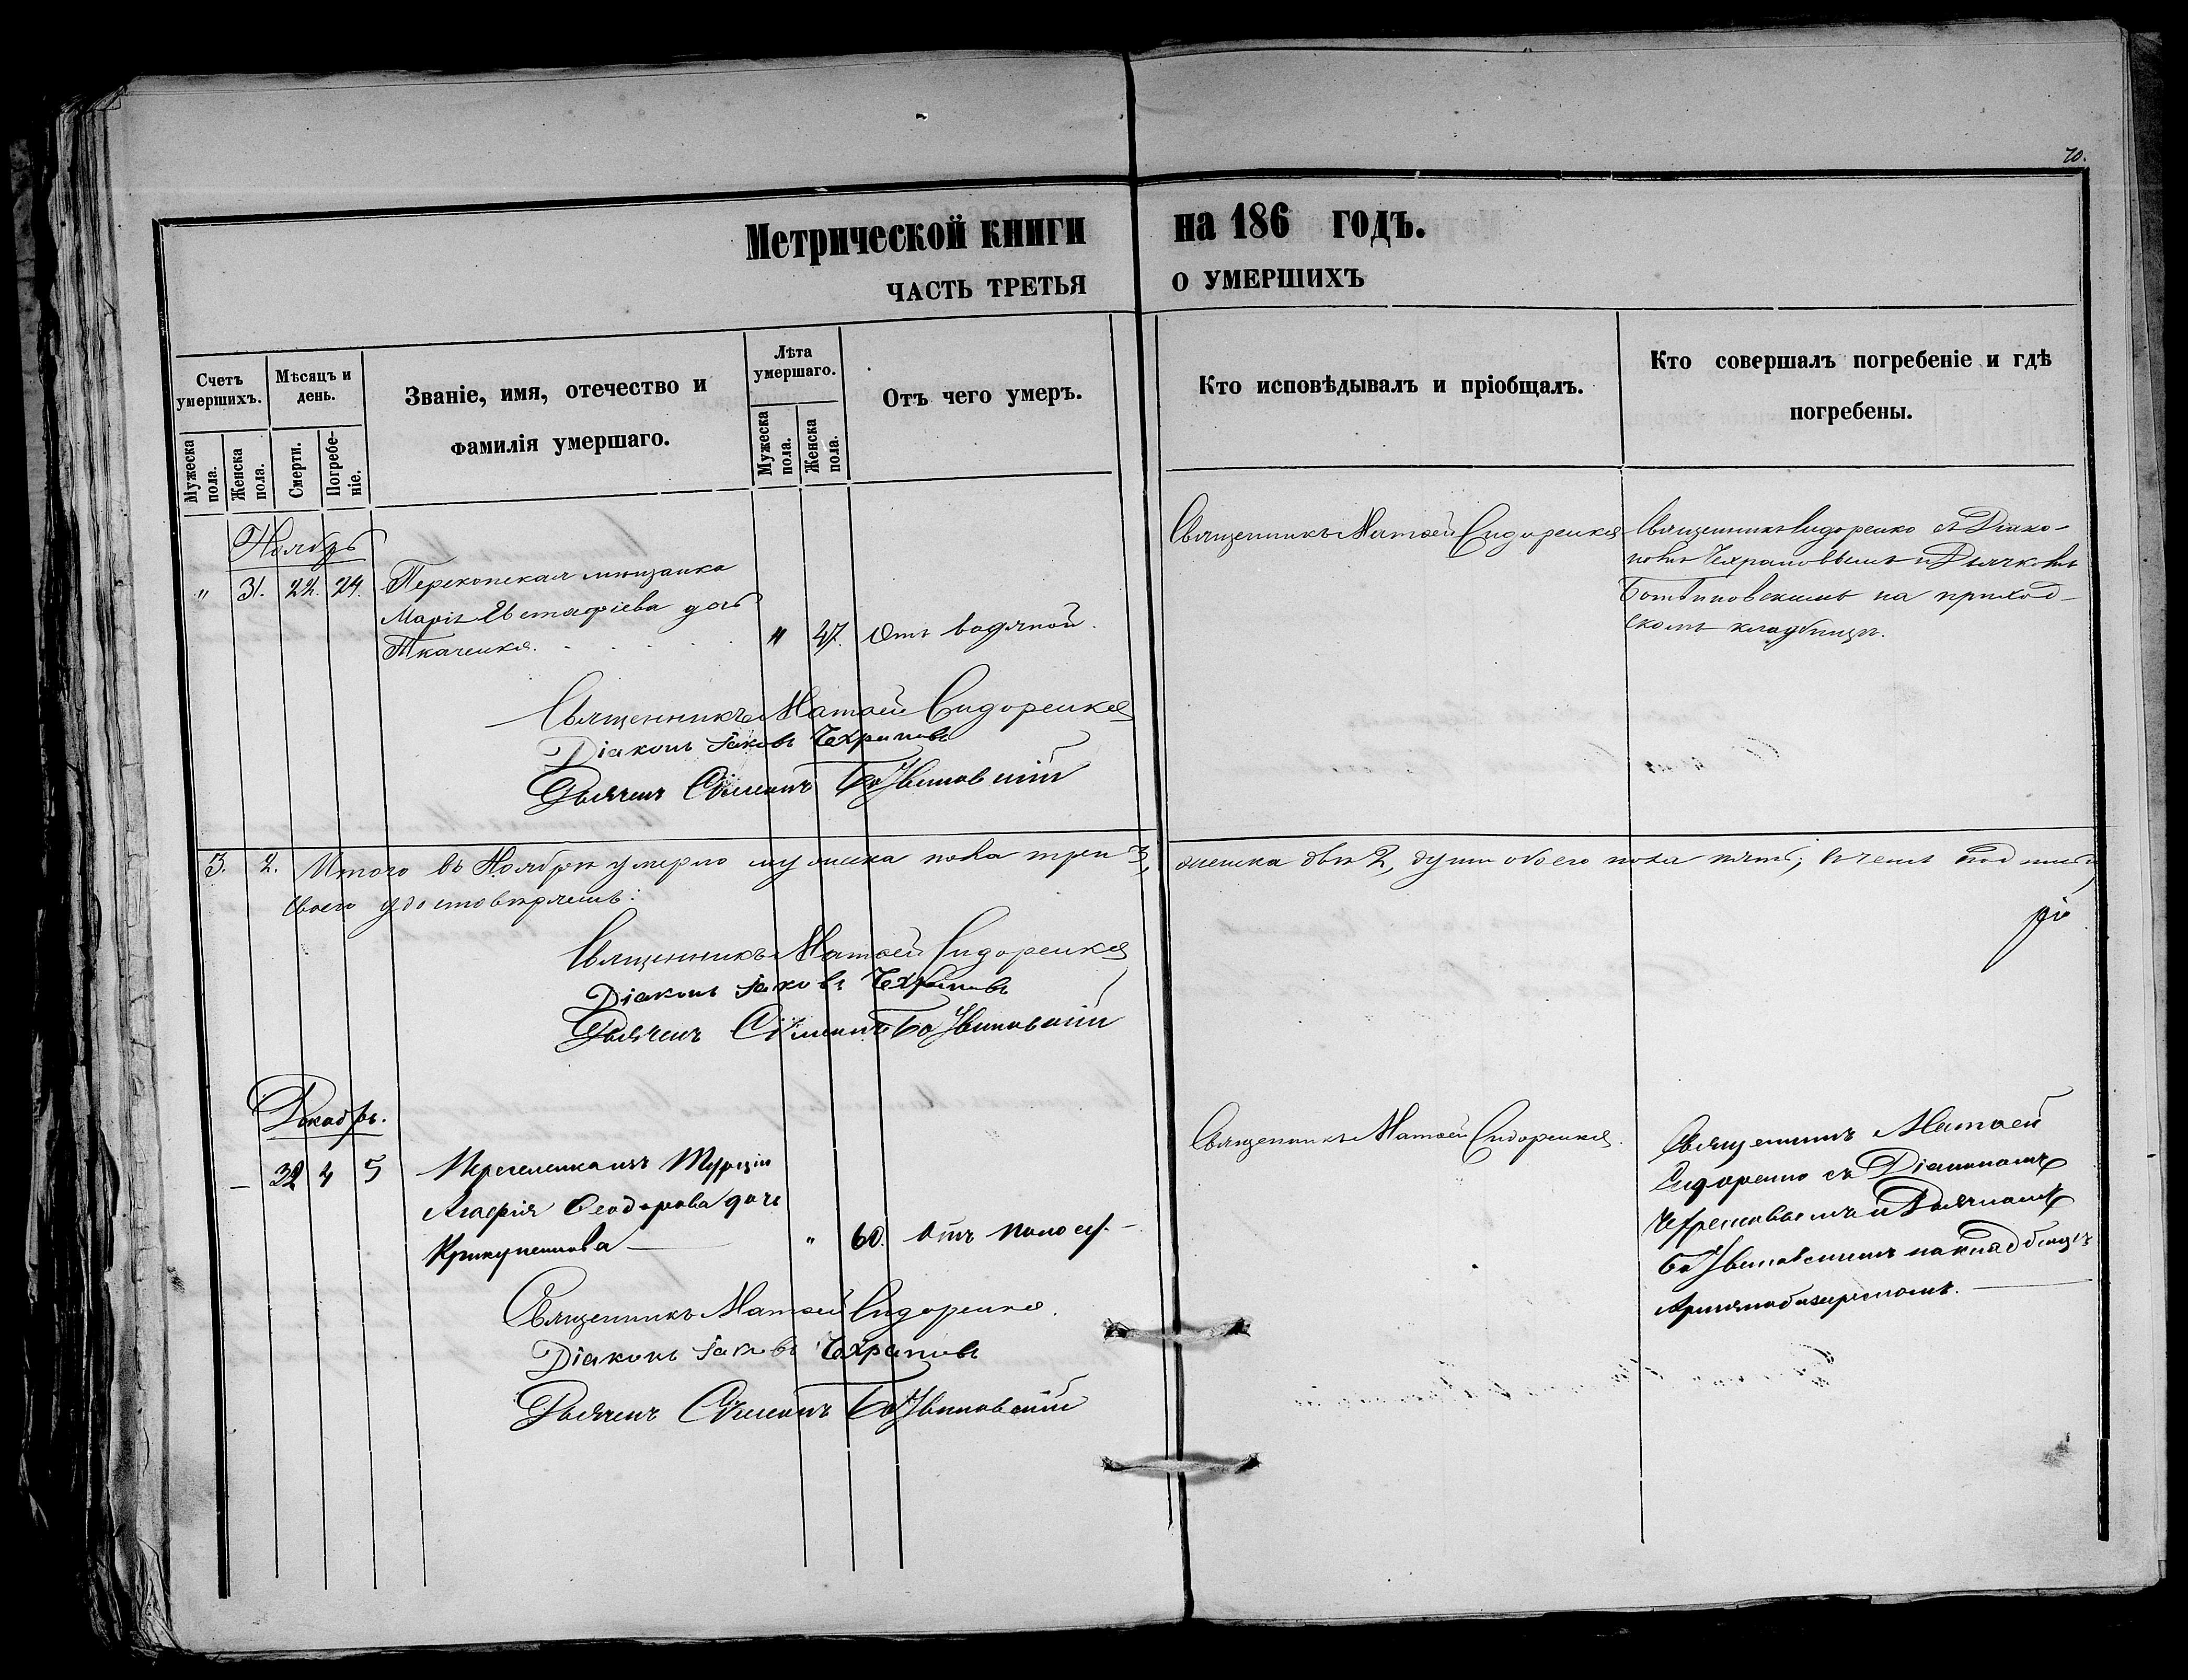 70.
Метрической книги на 186 годъ.
ЧАСТЬ ТРЕТЬЯ О УМЕРШИХЪ
Счетъ умершихъ.
Мужеска пола.
Женска пола.
Мѣсяцъ и день.
Смерти.
Погребеніе.
Званіе, имя, отечество и фамилія умершаго.
Лѣта умершаго.
Мужеска пола.
Женска пола.
Отъ чего умеръ.
Кто исповѣдывалъ и пріобщалъ.
Кто совершалъ погребеніе и гдѣ погребены.
Ноябрь
" 31. 22. 24. Перекопская мѣщанка
Марія Евстафіева дочь
Ткаченко. " 47. Отъ водяной.
Священникъ Матѳей Сидоренко
Священникъ Сидоренко съ Діако-
номъ Чехрановымъ и Дьячкомъ
на приход-
скомъ кладбищѣ.
Священникъ Матѳей Сидоренко
Діаконъ Іаковъ Чехрановъ
Дьячекъ Сѵмеонъ
3. 2. Итого въ Ноябрѣ умерло мужеска пола три 3, женска двѣ 2, душъ обоего пола пять; въ чемъ подпи
своею удостовѣряемъ:
Священникъ Матѳей Сидоренко
Діаконъ Іаковъ Чехрановъ
Дьячекъ Сѵмеонъ
Декабрь.
— 32 4 5 Турціи
Агафія Ѳеодорова дочь
" 60. Отъ
Священникъ Матѳей Сидоренко.
Священникъ Матѳей
Сидоренко съ Діакономъ
Чехрановымъ и Дьячкомъ
на кладбищѣ
Священникъ Матѳей Сидоренко.
Діаконъ Іаковъ Чехрановъ
Дьячекъ Сѵмеонъ